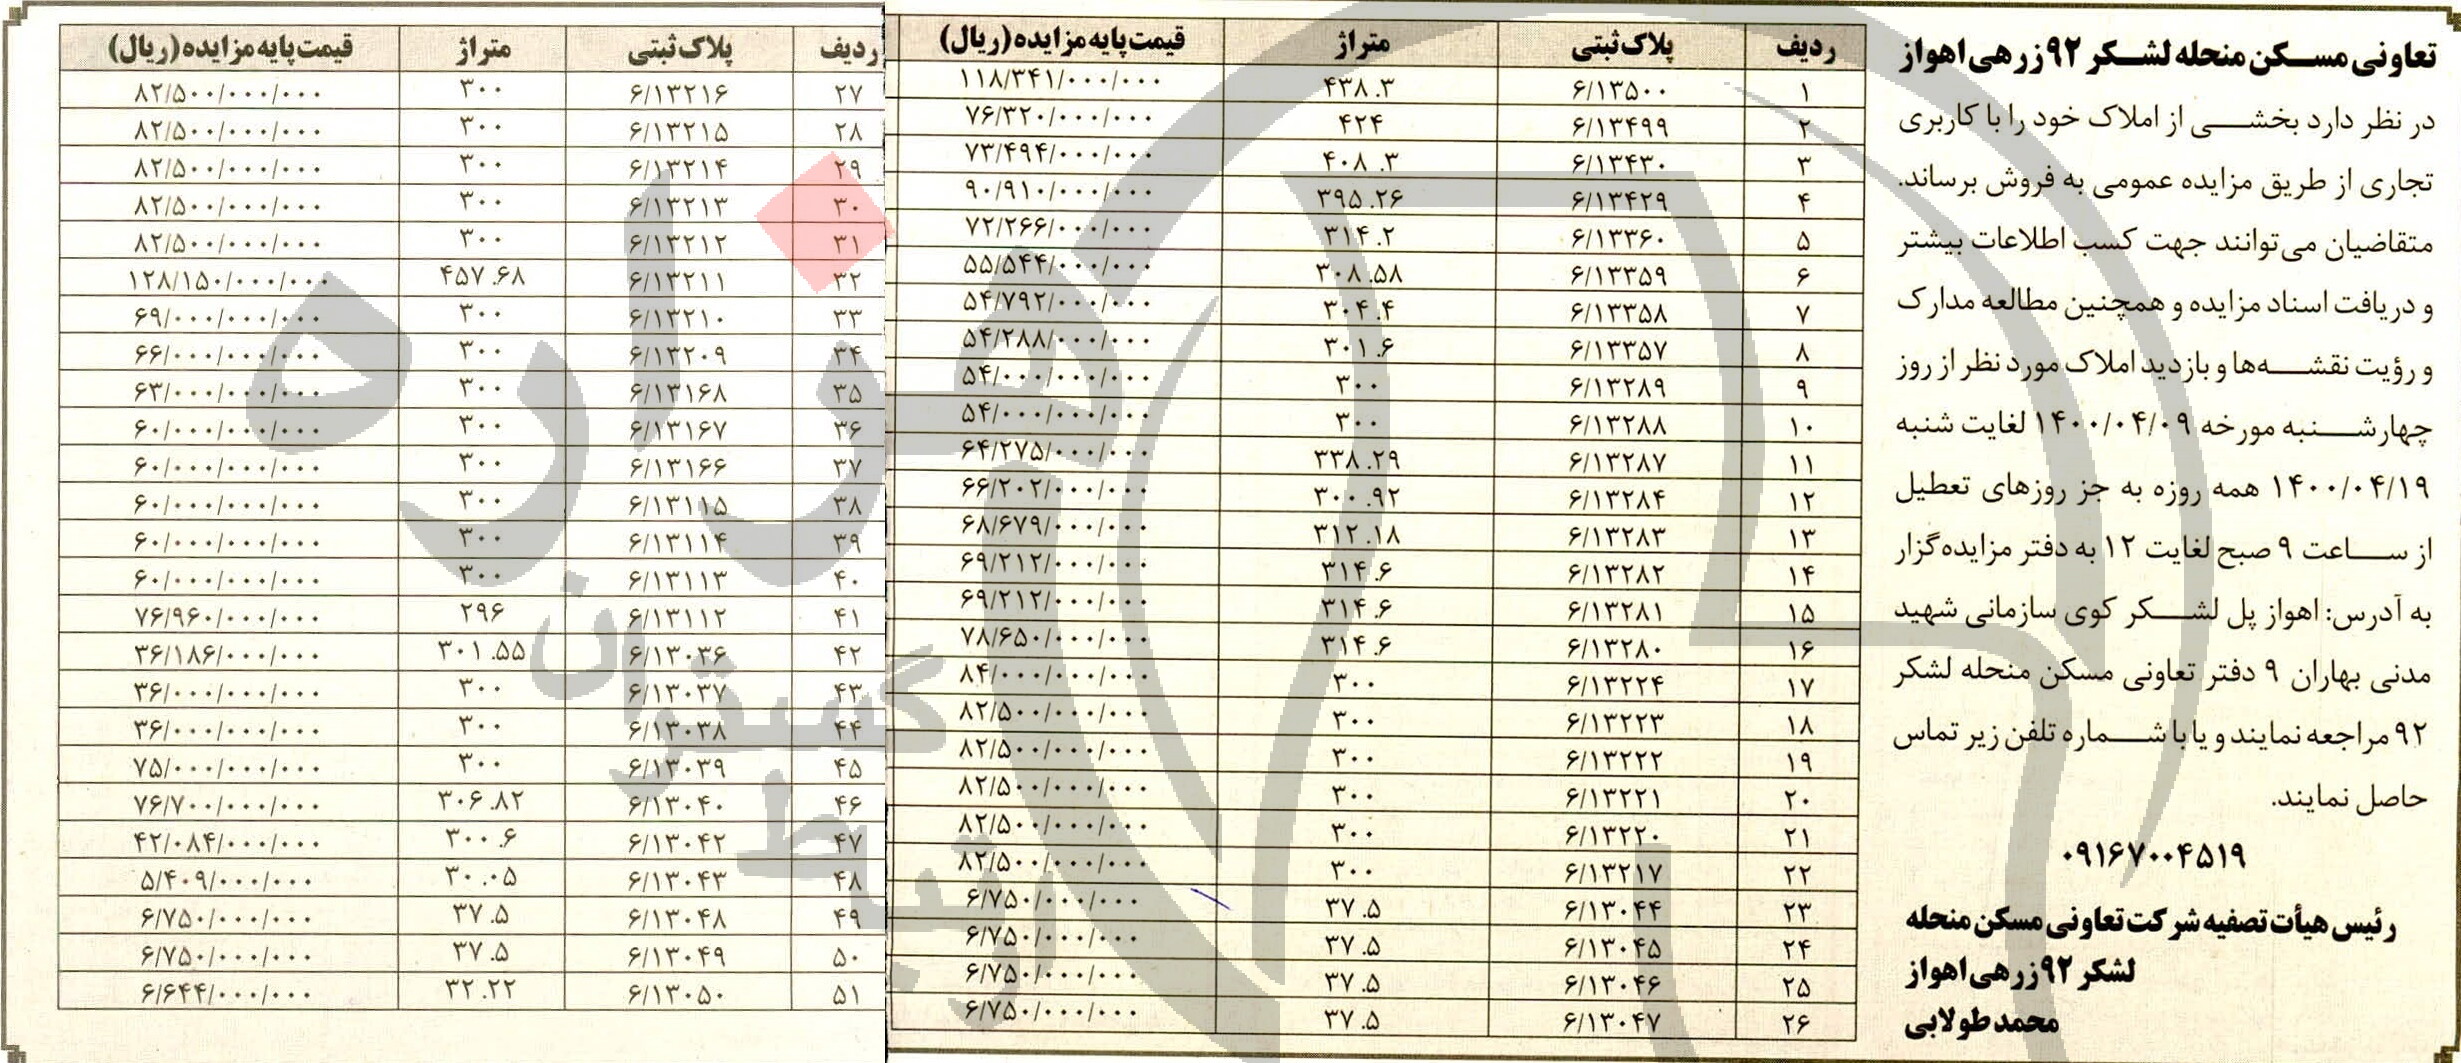 تعاونی مسکن منحله لشکر ۹۲ زرهی اهواز
در نظر دارد بخشی از املاک خود را با کاربری
تجاری از طریق مزایده عمومی به فروش برساند.
متقاضیان می‌توانند جهت کسب اطلاعات بیشتر
و دریافت اسناد مزایده و همچنین مطالعه مدارک
و رؤیت نقشه‌ها و بازدید املاک مورد نظر از روز
چهارشنبه مورخه ۱۴۰۰/۰۴/۰۹ لغایت شنبه
۱۴۰۰/۰۴/۱۹ همه روزه به جز روزهای تعطیل
از ساعت ۹ صبح لغایت ۱۲ به دفتر مزایده‌گزار
به آدرس: اهواز پل لشکر کوی سازمانی شهید
مدنی بهاران ۹ دفتر تعاونی مسکن منحله لشکر
۹۲ مراجعه نمایند و یا با شماره تلفن زیر تماس
حاصل نمایند.
۰۹۱۶۷۰۰۴۵۱۹
رئیس هیأت تصفیه شرکت تعاونی مسکن منحله
لشکر ۹۲ زرهی اهواز
محمد طولابی
ردیف پلاک ثبتی متراژ قیمت پایه مزایده (ریال)
۱ ۶/۱۳۵۰۰ ۴۳۸.۳ ۱۱۸/۳۴۱/۰۰۰/۰۰۰
۲ ۶/۱۳۴۹۹ ۴۲۴ ۷۶/۳۲۰/۰۰۰/۰۰۰
۳ ۶/۱۳۴۳۰ ۴۰۸.۳ ۷۳/۴۹۴/۰۰۰/۰۰۰
۴ ۶/۱۳۴۲۹ ۳۹۵.۲۶ ۹۰/۹۱۰/۰۰۰/۰۰۰
۵ ۶/۱۳۳۶۰ ۳۱۴.۲ ۷۲/۲۶۶/۰۰۰/۰۰۰
۶ ۶/۱۳۳۵۹ ۳۰۸.۵۸ ۵۵/۵۴۴/۰۰۰/۰۰۰
۷ ۶/۱۳۳۵۸ ۳۰۴.۴ ۵۴/۷۹۲/۰۰۰/۰۰۰
۸ ۶/۱۳۳۵۷ ۳۰۱.۶ ۵۴/۲۸۸/۰۰۰/۰۰۰
۹ ۶/۱۳۲۸۹ ۳۰۰ ۵۴/۰۰۰/۰۰۰/۰۰۰
۱۰ ۶/۱۳۲۸۸ ۳۰۰ ۵۴/۰۰۰/۰۰۰/۰۰۰
۱۱ ۶/۱۳۲۸۷ ۳۳۸.۲۹ ۶۴/۲۷۵/۰۰۰/۰۰۰
۱۲ ۶/۱۳۲۸۴ ۳۰۰.۹۲ ۶۶/۲۰۲/۰۰۰/۰۰۰
۱۳ ۶/۱۳۲۸۳ ۳۱۲.۱۸ ۶۸/۶۷۹/۰۰۰/۰۰۰
۱۴ ۶/۱۳۲۸۲ ۳۱۴.۶ ۶۹/۲۱۲/۰۰۰/۰۰۰
۱۵ ۶/۱۳۲۸۱ ۳۱۴.۶ ۶۹/۲۱۲/۰۰۰/۰۰۰
۱۶ ۶/۱۳۲۸۰ ۳۱۴.۶ ۷۸/۶۵۰/۰۰۰/۰۰۰
۱۷ ۶/۱۳۲۲۴ ۳۰۰ ۸۴/۰۰۰/۰۰۰/۰۰۰
۱۸ ۶/۱۳۲۲۳ ۳۰۰ ۸۲/۵۰۰/۰۰۰/۰۰۰
۱۹ ۶/۱۳۲۲۲ ۳۰۰ ۸۲/۵۰۰/۰۰۰/۰۰۰
۲۰ ۶/۱۳۲۲۱ ۳۰۰ ۸۲/۵۰۰/۰۰۰/۰۰۰
۲۱ ۶/۱۳۲۲۰ ۳۰۰ ۸۲/۵۰۰/۰۰۰/۰۰۰
۲۲ ۶/۱۳۲۱۷ ۳۰۰ ۸۲/۵۰۰/۰۰۰/۰۰۰
۲۳ ۶/۱۳۰۴۴ ۳۷.۵ ۶/۷۵۰/۰۰۰/۰۰۰
۲۴ ۶/۱۳۰۴۵ ۳۷.۵ ۶/۷۵۰/۰۰۰/۰۰۰
۲۵ ۶/۱۳۰۴۶ ۳۷.۵ ۶/۷۵۰/۰۰۰/۰۰۰
۲۶ ۶/۱۳۰۴۷ ۳۷.۵ ۶/۷۵۰/۰۰۰/۰۰۰
ردیف پلاک ثبتی متراژ قیمت پایه مزایده (ریال)
۲۷ ۶/۱۳۲۱۶ ۳۰۰ ۸۲/۵۰۰/۰۰۰/۰۰۰
۲۸ ۶/۱۳۲۱۵ ۳۰۰ ۸۲/۵۰۰/۰۰۰/۰۰۰
۲۹ ۶/۱۳۲۱۴ ۳۰۰ ۸۲/۵۰۰/۰۰۰/۰۰۰
۳۰ ۶/۱۳۲۱۳ ۳۰۰ ۸۲/۵۰۰/۰۰۰/۰۰۰
۳۱ ۶/۱۳۲۱۲ ۳۰۰ ۸۲/۵۰۰/۰۰۰/۰۰۰
۳۲ ۶/۱۳۲۱۱ ۴۵۷.۶۸ ۱۲۸/۱۵۰/۰۰۰/۰۰۰
۳۳ ۶/۱۳۲۱۰ ۳۰۰ ۶۹/۰۰۰/۰۰۰/۰۰۰
۳۴ ۶/۱۳۲۰۹ ۳۰۰ ۶۶/۰۰۰/۰۰۰/۰۰۰
۳۵ ۶/۱۳۱۶۸ ۳۰۰ ۶۳/۰۰۰/۰۰۰/۰۰۰
۳۶ ۶/۱۳۱۶۷ ۳۰۰ ۶۰/۰۰۰/۰۰۰/۰۰۰
۳۷ ۶/۱۳۱۶۶ ۳۰۰ ۶۰/۰۰۰/۰۰۰/۰۰۰
۳۸ ۶/۱۳۱۱۵ ۳۰۰ ۶۰/۰۰۰/۰۰۰/۰۰۰
۳۹ ۶/۱۳۱۱۴ ۳۰۰ ۶۰/۰۰۰/۰۰۰/۰۰۰
۴۰ ۶/۱۳۱۱۳ ۳۰۰ ۶۰/۰۰۰/۰۰۰/۰۰۰
۴۱ ۶/۱۳۱۱۲ ۲۹۶ ۷۶/۹۶۰/۰۰۰/۰۰۰
۴۲ ۶/۱۳۰۳۶ ۳۰۱.۵۵ ۳۶/۱۸۶/۰۰۰/۰۰۰
۴۳ ۶/۱۳۰۳۷ ۳۰۰ ۳۶/۰۰۰/۰۰۰/۰۰۰
۴۴ ۶/۱۳۰۳۸ ۳۰۰ ۳۶/۰۰۰/۰۰۰/۰۰۰
۴۵ ۶/۱۳۰۳۹ ۳۰۰ ۷۵/۰۰۰/۰۰۰/۰۰۰
۴۶ ۶/۱۳۰۴۰ ۳۰۶.۸۲ ۷۶/۷۰۰/۰۰۰/۰۰۰
۴۷ ۶/۱۳۰۴۲ ۳۰۰.۶ ۴۲/۰۸۴/۰۰۰/۰۰۰
۴۸ ۶/۱۳۰۴۳ ۳۰.۰۵ ۵/۴۰۹/۰۰۰/۰۰۰
۴۹ ۶/۱۳۰۴۸ ۳۷.۵ ۶/۷۵۰/۰۰۰/۰۰۰
۵۰ ۶/۱۳۰۴۹ ۳۷.۵ ۶/۷۵۰/۰۰۰/۰۰۰
۵۱ ۶/۱۳۰۵۰ ۳۲.۲۲ ۶/۶۴۴/۰۰۰/۰۰۰